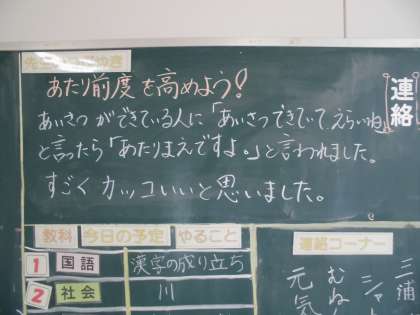 あたり前度を高めよう!
あいさつができている人に「あいさつできていて、えらいね」
と言ったら「あたりまえですよ。」と言われました。
すごくカッコいいと思いました。
連絡
教科 今日の予定 やること
1 国語 漢字の成り立ち
2 社会 川
連絡コーナー
三浦